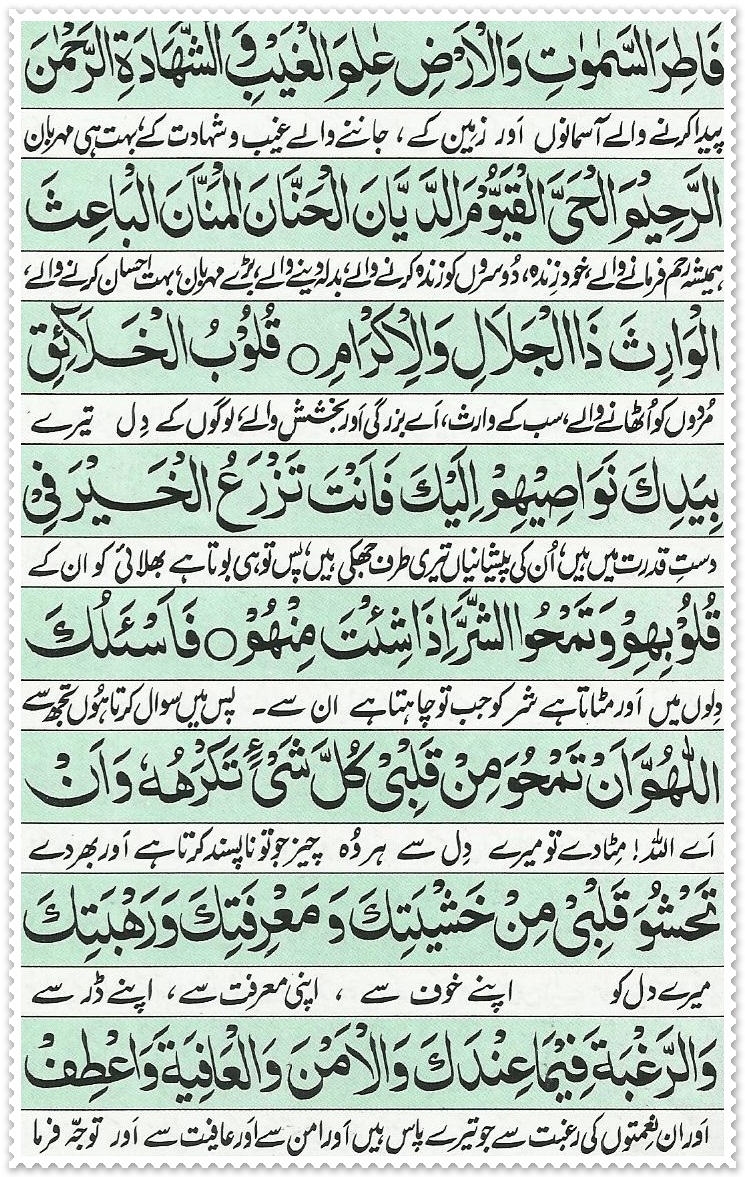 فَاطِرَ السَّمٰوٰتِ وَالْاَرْضِ عٰلِمَ الْغَيْبِ وَ الشَّهَادَةِ الرَّحْمٰنَ
پیدا کرنے والے آسمانوں اور زمین کے ، جاننے والے غیب و شہادت کے، بہت ہی مہربان
الرَّحِيْمَ الْحَيَّ الْقَيُّوْمَ الدَّيَّانَ الْحَنَّانَ الْمَنَّانَ الْبَاعِثَ
ہمیشہ رحم فرمانے والے، خود زندہ، دُوسروں کو زندہ کرنے والے، بدلہ دینے والے، بڑے مہربان، بہت احسان کرنے والے،
الْوَارِثَ ذَا الْجَلَالِ وَالْاِكْرَامِ ○ قُلُوْبُ الْخَلَآئِقِ
مُردوں کو اُٹھانے والے، سب کے وارث، اَے بزرگی اَور بخشش والے، لوگوں کے دِل تیرے
بِيَدِكَ نَوَاصِيْهِمْ اِلَيْكَ فَاَنْتَ تَزْرَعُ الْخَيْرَ فِيْ
دستِ قدرت میں ہیں، اُن کی پیشانیاں تیری طرف جھکی ہیں، پس تو ہی بوتا ہے بھلائی کو ان کے
قُلُوْبِهِمْ وَتَمْحُوا الشَّرَّ اِذَا شِئْتَ مِنْهُمْ ○ فَاَسْئَلُكَ
دِلوں میں اَور مٹاتا ہے شر کو جب تو چاہتا ہے ان سے۔ پس میں سوال کرتا ہُوں تجھ سے
اللّٰهُمَّ اَنْ تَمْحُوَ مِنْ قَلْبِيْ كُلَّ شَيْءٍ تَكْرَهُهٗ وَاَنْ
اَے اللہ! مِٹا دے تو میرے دِل سے ہر وُہ چیز جو تو ناپسند کرتا ہے اَور بھر دے
تَحْشُوَ قَلْبِيْ مِنْ خَشْيَتِكَ وَ مَعْرِفَتِكَ وَرَهْبَتِكَ
میرے دل کو اپنے خوف سے ، اپنی معرفت سے ، اپنے ڈر سے
وَالرَّغْبَةَ فِيْمَا عِنْدَكَ وَالْاَمْنَ وَالْعَافِيَةَ وَاعْطِفْ
اور ان نعمتوں کی رغبت سے جو تیرے پاس ہیں اَور امن سے اَور عافیت سے اَور توجّہ فرما